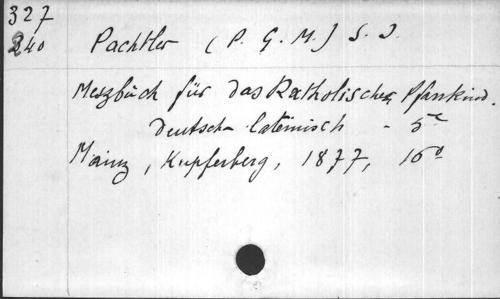 327
240
Pachtler (P. G. M.) S. J.
Meszbuch für das Katholischen Pfarrkind.
deutsch-lateinisch - 5e
Mainz, Kupferberg, 1877, 16o